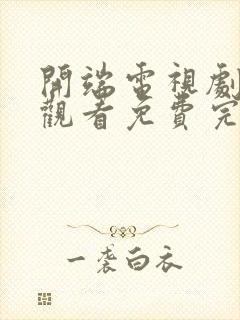 開端電視劇
觀看免費完
一袭白衣